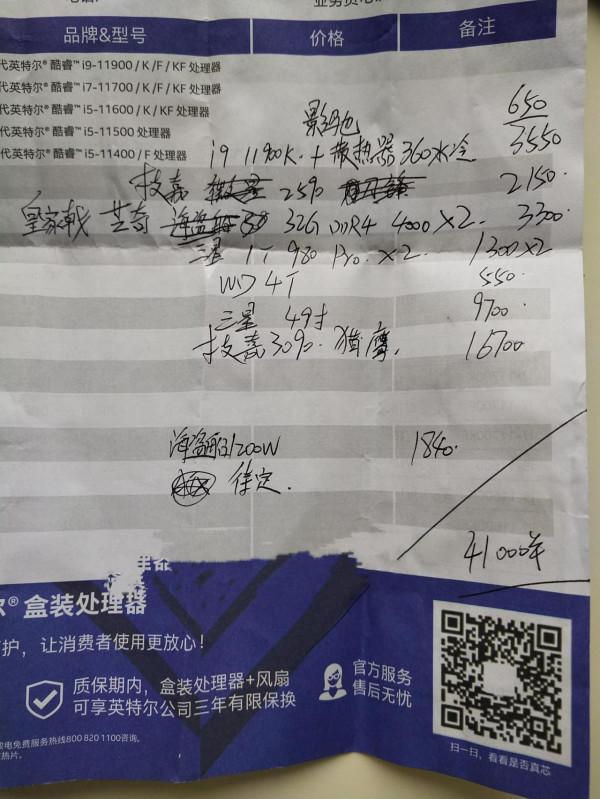 品牌&型号 价格 备注
代英特尔® 酷睿™ i9-11900 / K / F / KF 处理器
代英特尔® 酷睿™ i7-11700 / K / F / KF 处理器
代英特尔® 酷睿™ i5-11600 / K / KF 处理器
代英特尔® 酷睿™ i5-11500 处理器
代英特尔® 酷睿™ i5-11400 / F 处理器
650
i9 11900K + 散热器 360水冷 3550
技嘉 Z590 2150
皇家戟 芝奇 32G DDR4 4000 X2 3300
三星 1T 980 Pro X2 1300X2
WD 4T 550
三星 49寸 9700
技嘉 3090 猎鹰 16700
海盗船1200W 1840
待定
41000
尔® 盒装处理器
护，让消费者使用更放心！
质保期内，盒装处理器+风扇
可享英特尔公司三年有限保换
官方服务
售后无忧
致电免费服务热线800 820 1100咨询。
热片。
扫一扫，看看是否真芯